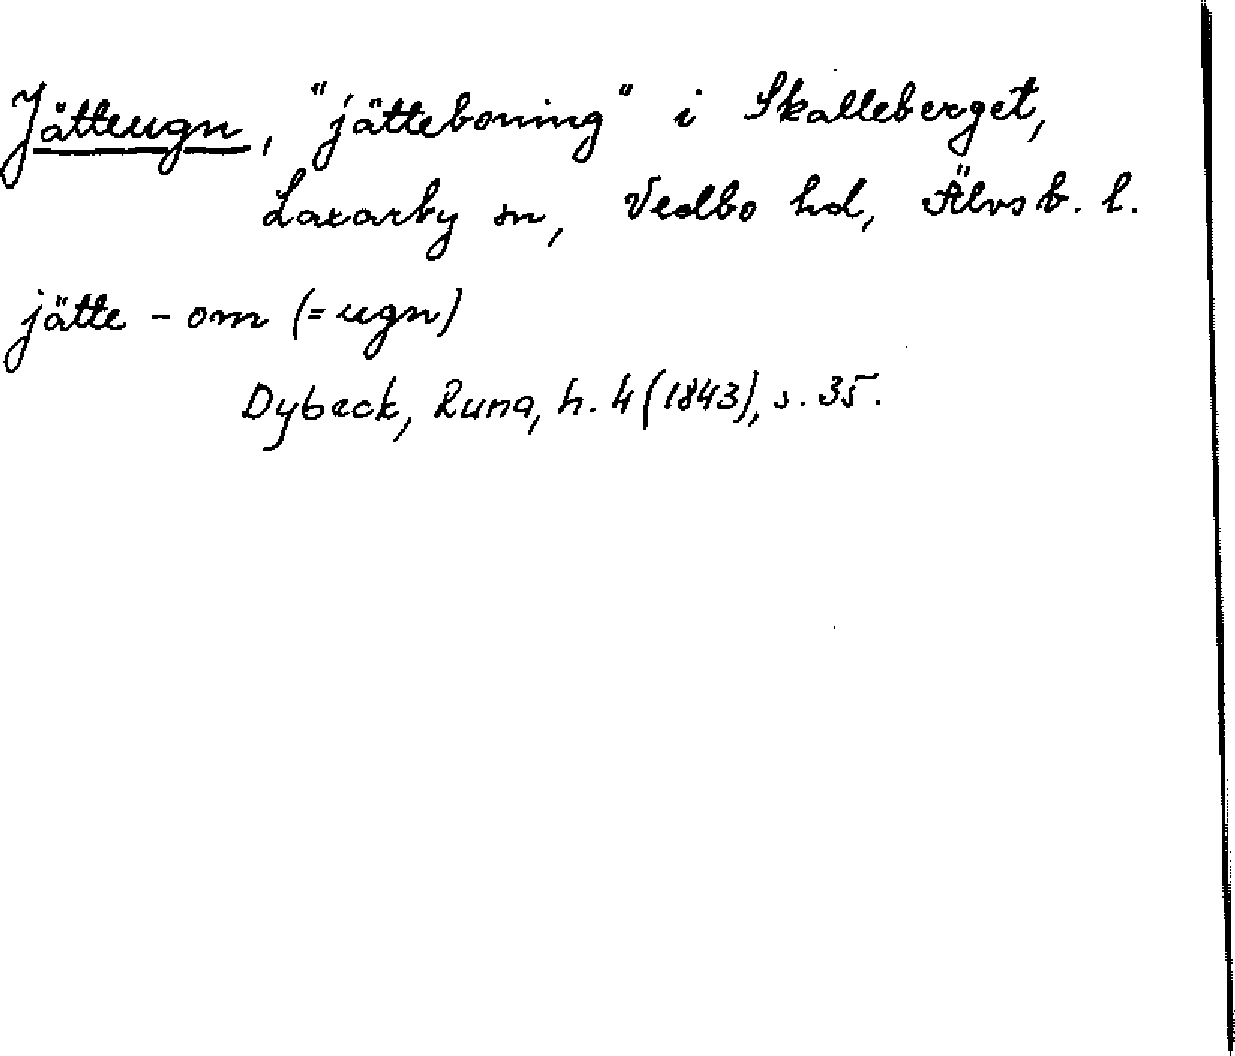 Jätteugn, "jätteboning" i Skalleberget,
Laxarby sn, Vedbo hd, Älvsb. l.
jätte - om (= ugn)
Dybeck, Runa, h. 4 (1843), s. 35.